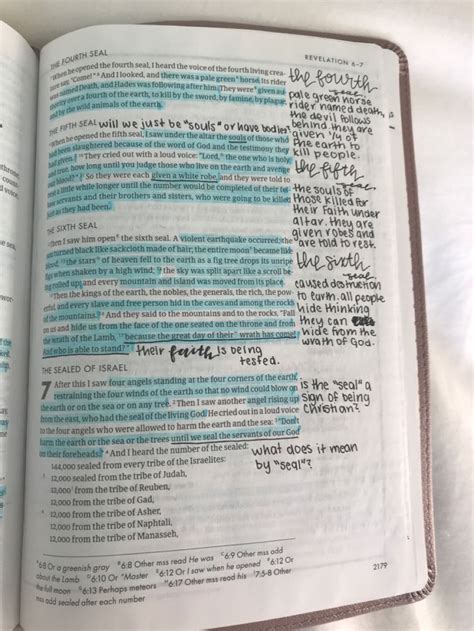 REVELATION 6–7
THE FOURTH SEAL
When he opened the fourth seal, I heard the voice of the fourth living crea-
ture say, "Come!" And I looked, and there was a pale green horse. Its rider
was named Death, and Hades was following after him. They were given au-
thority over a fourth of the earth, to kill by the sword, by famine, by plague,
and by the wild animals of the earth.
the fourth
seal
pale green horse
rider named death,
the devil follows
behind. they are
given 1/4 of
the earth to
kill people.
THE FIFTH SEAL
will we just be "souls" or have bodies?
When he opened the fifth seal, I saw under the altar the souls of those who
had been slaughtered because of the word of God and the testimony they
had given. They cried out with a loud voice: "Lord, the one who is holy
and true, how long until you judge those who live on the earth and avenge
our blood?" So they were each given a white robe, and they were told to rest
a little while longer until the number would be completed of their fellow
servants and their brothers and sisters, who were going to be killed
just as they had been.
the fifth
seal
the souls of
those killed for
their faith under
altar. they are
given robes and
are told to rest.
THE SIXTH SEAL
Then I saw him open the sixth seal. A violent earthquake occurred; the
sun turned black like sackcloth made of hair; the entire moon became like
blood; the stars of heaven fell to the earth as a fig tree drops its unripe
figs when shaken by a high wind; the sky was split apart like a scroll be-
ing rolled up; and every mountain and island was moved from its place.
Then the kings of the earth, the nobles, the generals, the rich, the pow-
erful, and every slave and free person hid in the caves and among the rocks
of the mountains. And they said to the mountains and to the rocks, "Fall
on us and hide us from the face of the one seated on the throne and from
the wrath of the Lamb, because the great day of their wrath has come!
And who is able to stand?"
their faith is being
tested.
the sixth
seal
caused destruction
to earth. all people
hide thinking
they can
hide from the
wrath of God.
THE SEALED OF ISRAEL
7 After this I saw four angels standing at the four corners of the earth,
restraining the four winds of the earth so that no wind could blow on
the earth or on the sea or on any tree. Then I saw another angel rising up
from the east, who had the seal of the living God. He cried out in a loud voice
to the four angels who were allowed to harm the earth and the sea: "Don't
harm the earth or the sea or the trees until we seal the servants of our God
on their foreheads." And I heard the number of the sealed:
is the "seal" a
sign of being
Christian?
what does it mean
by "seal"?
144,000 sealed from every tribe of the Israelites:
12,000 sealed from the tribe of Judah,
12,000 from the tribe of Reuben,
12,000 from the tribe of Gad,
12,000 from the tribe of Asher,
12,000 from the tribe of Naphtali,
12,000 from the tribe of Manasseh,
6:8 Or a greenish gray 6:8 Other mss read He was 6:9 Other mss add
about the Lamb 6:10 Or "Master 6:12 Or I saw when he opened 6:12 Or
the full moon 6:13 Perhaps meteors 6:17 Other mss read his 7:5-8 Other
mss add sealed after each number
2179